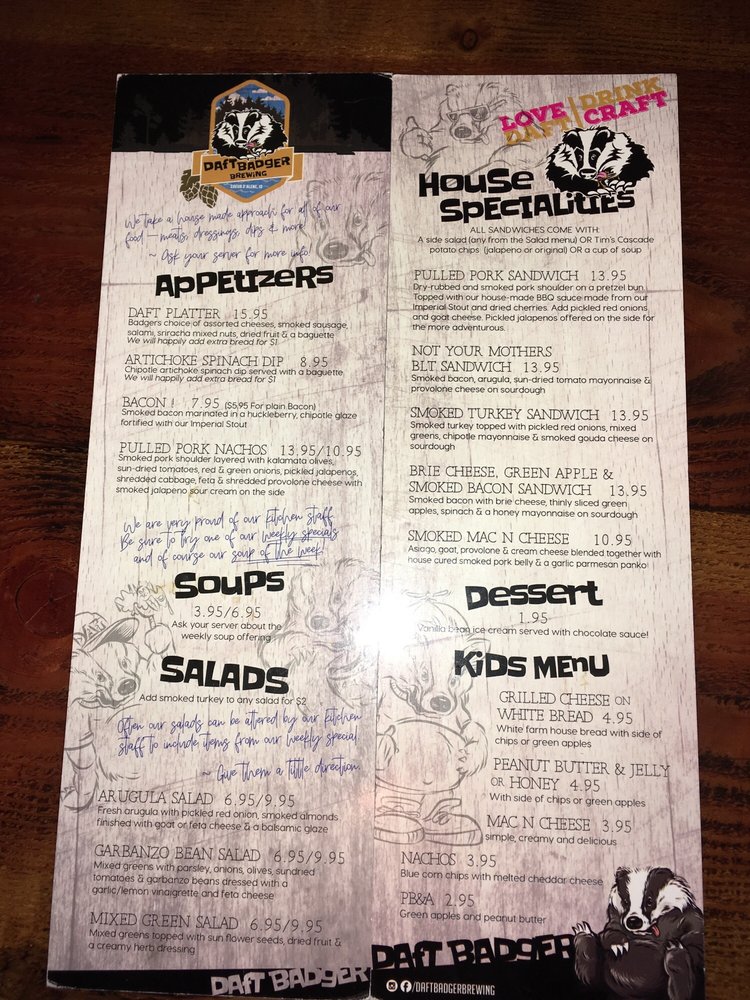 DAFT BADGER
BREWING
COEUR D'ALENE, ID
We take a house made approach for all of our
food – meats, dressings, dips & more!
~ Ask your server for more info!
APPETIZERS
DAFT PLATTER 15.95
Badgers choice of assorted cheeses, smoked sausage,
salami, sriracha mixed nuts, dried fruit & a baguette
We will happily add extra bread for $1
ARTICHOKE SPINACH DIP 8.95
Chipotle artichoke spinach dip served with a baguette
We will happily add extra bread for $1
BACON! 7.95 ($5.95 For plain Bacon)
Smoked bacon marinated in a huckleberry, chipotle glaze
fortified with our Imperial Stout
PULLED PORK NACHOS 13.95/10.95
Smoked pork shoulder layered with kalamata olives,
sun-dried tomatoes, red & green onions, pickled jalapenos,
shredded cabbage, feta & shredded provolone cheese with
smoked jalapeno sour cream on the side
We are very proud of our kitchen staff.
Be sure to try one of our weekly specials
and of course our soup of the week!
SOUPS
3.95/6.95
Ask your server about the
weekly soup offering
SALADS
Add smoked turkey to any salad for $2
Often our salads can be altered by our kitchen
staff to include items from our weekly special.
~ Give them a little direction.
ARUGULA SALAD 6.95/9.95
Fresh arugula with pickled red onion, smoked almonds
finished with goat or feta cheese & a balsamic glaze
GARBANZO BEAN SALAD 6.95/9.95
Mixed greens with parsley, onions, olives, sundried
tomatoes & garbanzo beans dressed with a
garlic/lemon vinaigrette and feta cheese
MIXED GREEN SALAD 6.95/9.95
Mixed greens topped with sun flower seeds, dried fruit &
a creamy herb dressing
DAFT BADGER
LOVE DRINK
DAFT CRAFT
HOUSE
SPECIALITIES
ALL SANDWICHES COME WITH:
A side salad (any from the Salad menu) OR Tim's Cascade
potato chips (jalapeno or original) OR a cup of soup
PULLED PORK SANDWICH 13.95
Dry-rubbed and smoked pork shoulder on a pretzel bun.
Topped with our house-made BBQ sauce made from our
Imperial Stout and dried cherries. Add pickled red onions,
and goat cheese. Pickled jalapenos offered on the side for
the more adventurous.
NOT YOUR MOTHERS
BLT SANDWICH 13.95
Smoked bacon, arugula, sun-dried tomato mayonnaise &
provolone cheese on sourdough
SMOKED TURKEY SANDWICH 13.95
Smoked turkey topped with pickled red onions, mixed
greens, chipotle mayonnaise & smoked gouda cheese on
sourdough
BRIE CHEESE, GREEN APPLE &
SMOKED BACON SANDWICH 13.95
Smoked bacon with brie cheese, thinly sliced green
apples, spinach & a honey mayonnaise on sourdough
SMOKED MAC N CHEESE 10.95
Asiago, goat, provolone & cream cheese blended together with
house cured smoked pork belly & a garlic parmesan panko!
DESSERT
1.95
Vanilla bean ice cream served with chocolate sauce!
KIDS MENU
GRILLED CHEESE ON
WHITE BREAD 4.95
White farm house bread with side of
chips or green apples
PEANUT BUTTER & JELLY
OR HONEY 4.95
With side of chips or green apples
MAC N CHEESE 3.95
simple, creamy and delicious
NACHOS 3.95
Blue corn chips with melted cheddar cheese
PB&A 2.95
Green apples and peanut butter
DAFT BADGER
/DAFTBADGERBREWING